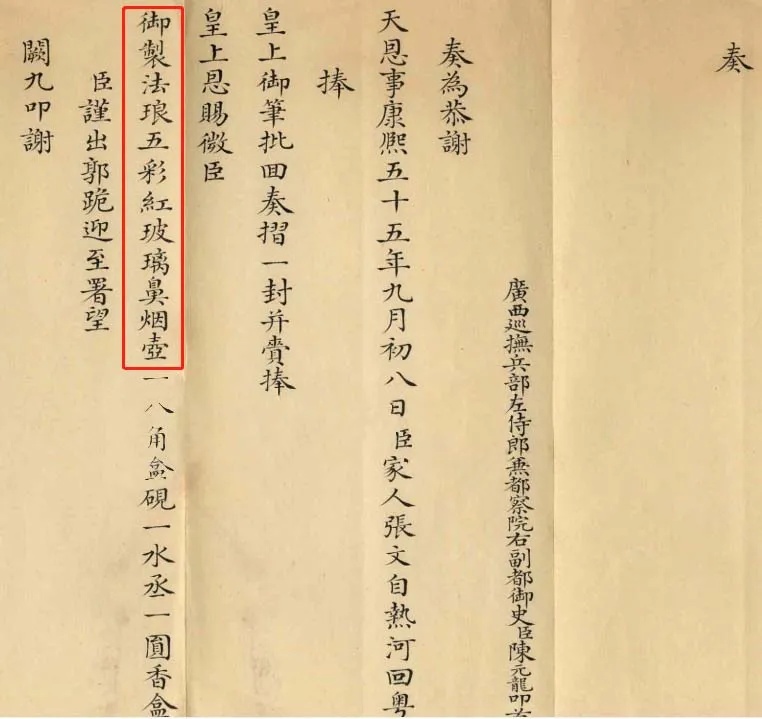 奏
廣西巡撫兵部左侍郎兼都察院右副都御史臣陳元龍叩首
奏為恭謝
天恩事康熙五十五年九月初八日臣家人張文自熱河回粵
捧
皇上御筆批回奏摺一封并賫捧
皇上恩賜微臣
御製法琅五彩紅玻璃鼻烟壺一八角盒硯一水丞一圓香盒
臣謹出郭跪迎至署望
闕九叩謝